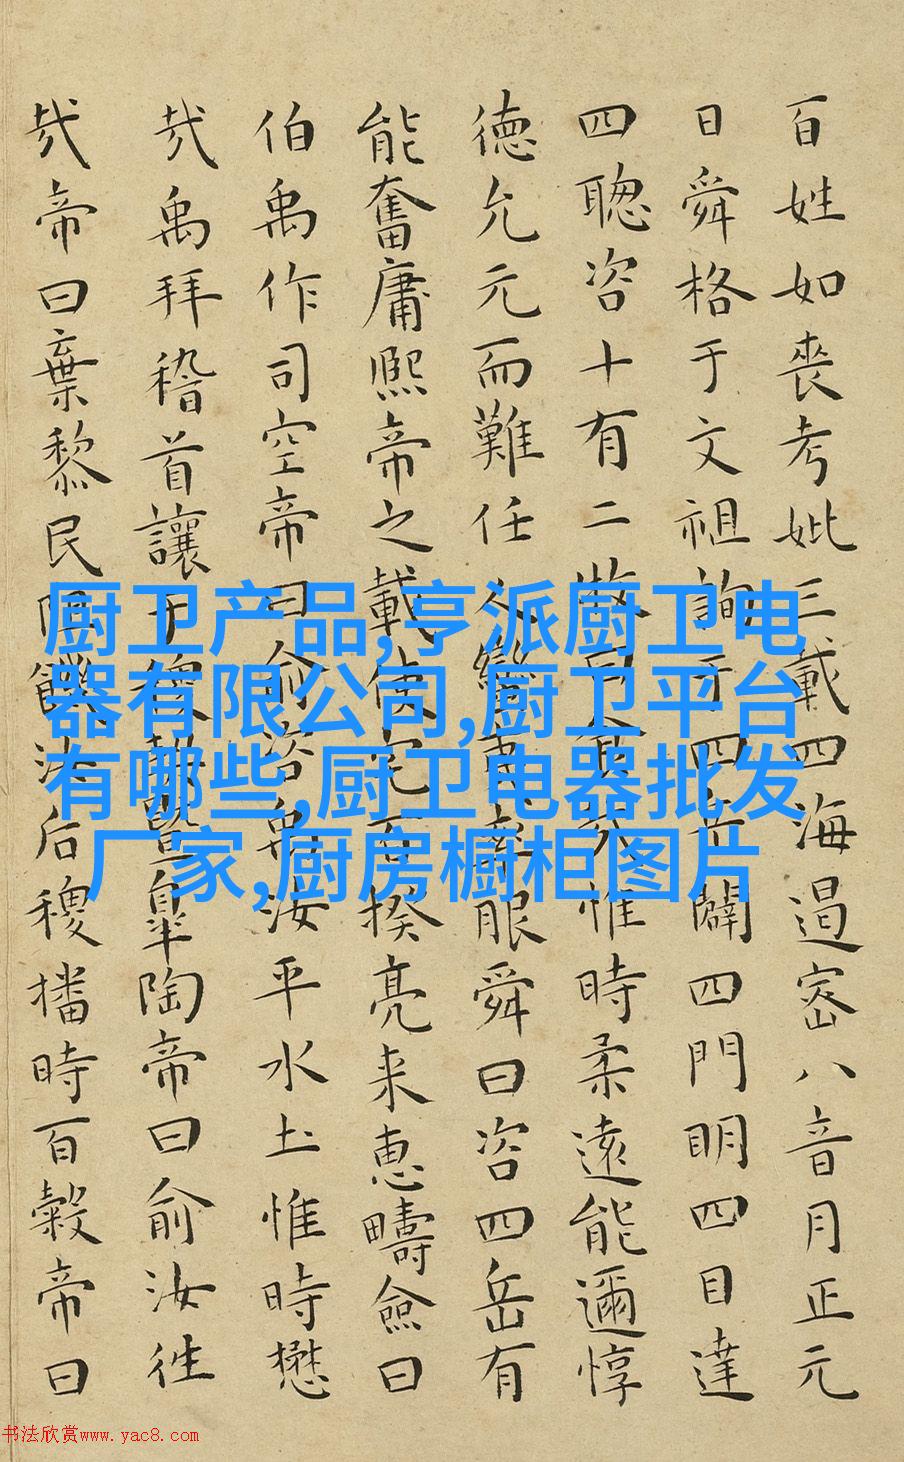 百姓如喪考妣三載四海遏密八音月正元
日舜格于文祖詢于四岳闢四門明四目達
四聰咨十有二牧曰食哉惟時柔遠能邇惇
德允元而難任人蠻夷率服舜曰咨四岳有
能奮庸熙帝之載使宅百揆亮采惠疇僉曰
伯禹作司空帝曰俞咨禹汝平水土惟時懋
哉禹拜稽首讓于稷暨皐陶帝曰俞汝往
哉帝曰棄黎民阻饑汝后稷播時百穀帝曰
厨卫产品,亨派厨卫电
器有限公司,厨卫平台
有哪些,厨卫电器批发
厂家,厨房橱柜图片
书法欣赏www.yac8.com